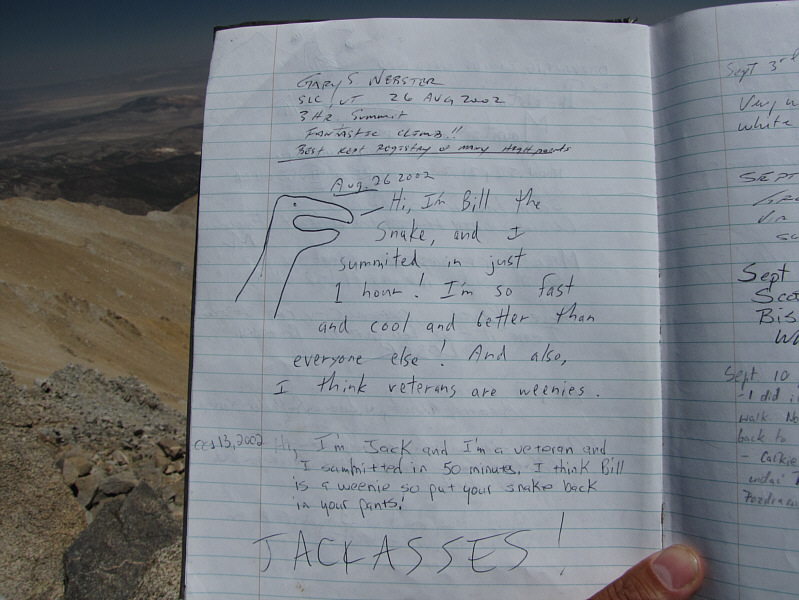 GARY S WEBSTER
SLC, UT 26 AUG 2002
3 HR Summit
FANTASTIC CLIMB!!
BEST KEPT REGISTRY of MANY Highpoints
Aug. 26 2002
Hi, I'm Bill the
Snake, and I
summited in just
1 hour! I'm so fast
and cool and better than
everyone else! And also,
I think veterans are weenies.
13, 2002 Hi, I'm Jack and I'm a veteran and
I summitted in 50 minutes. I think Bill
is a weenie so put your snake back
in your pants!
JACKASSES!
Sept 3rd
Very
white
SEPT
Sept
Sco
Bis
Sept 10
- I did
walk No
back to